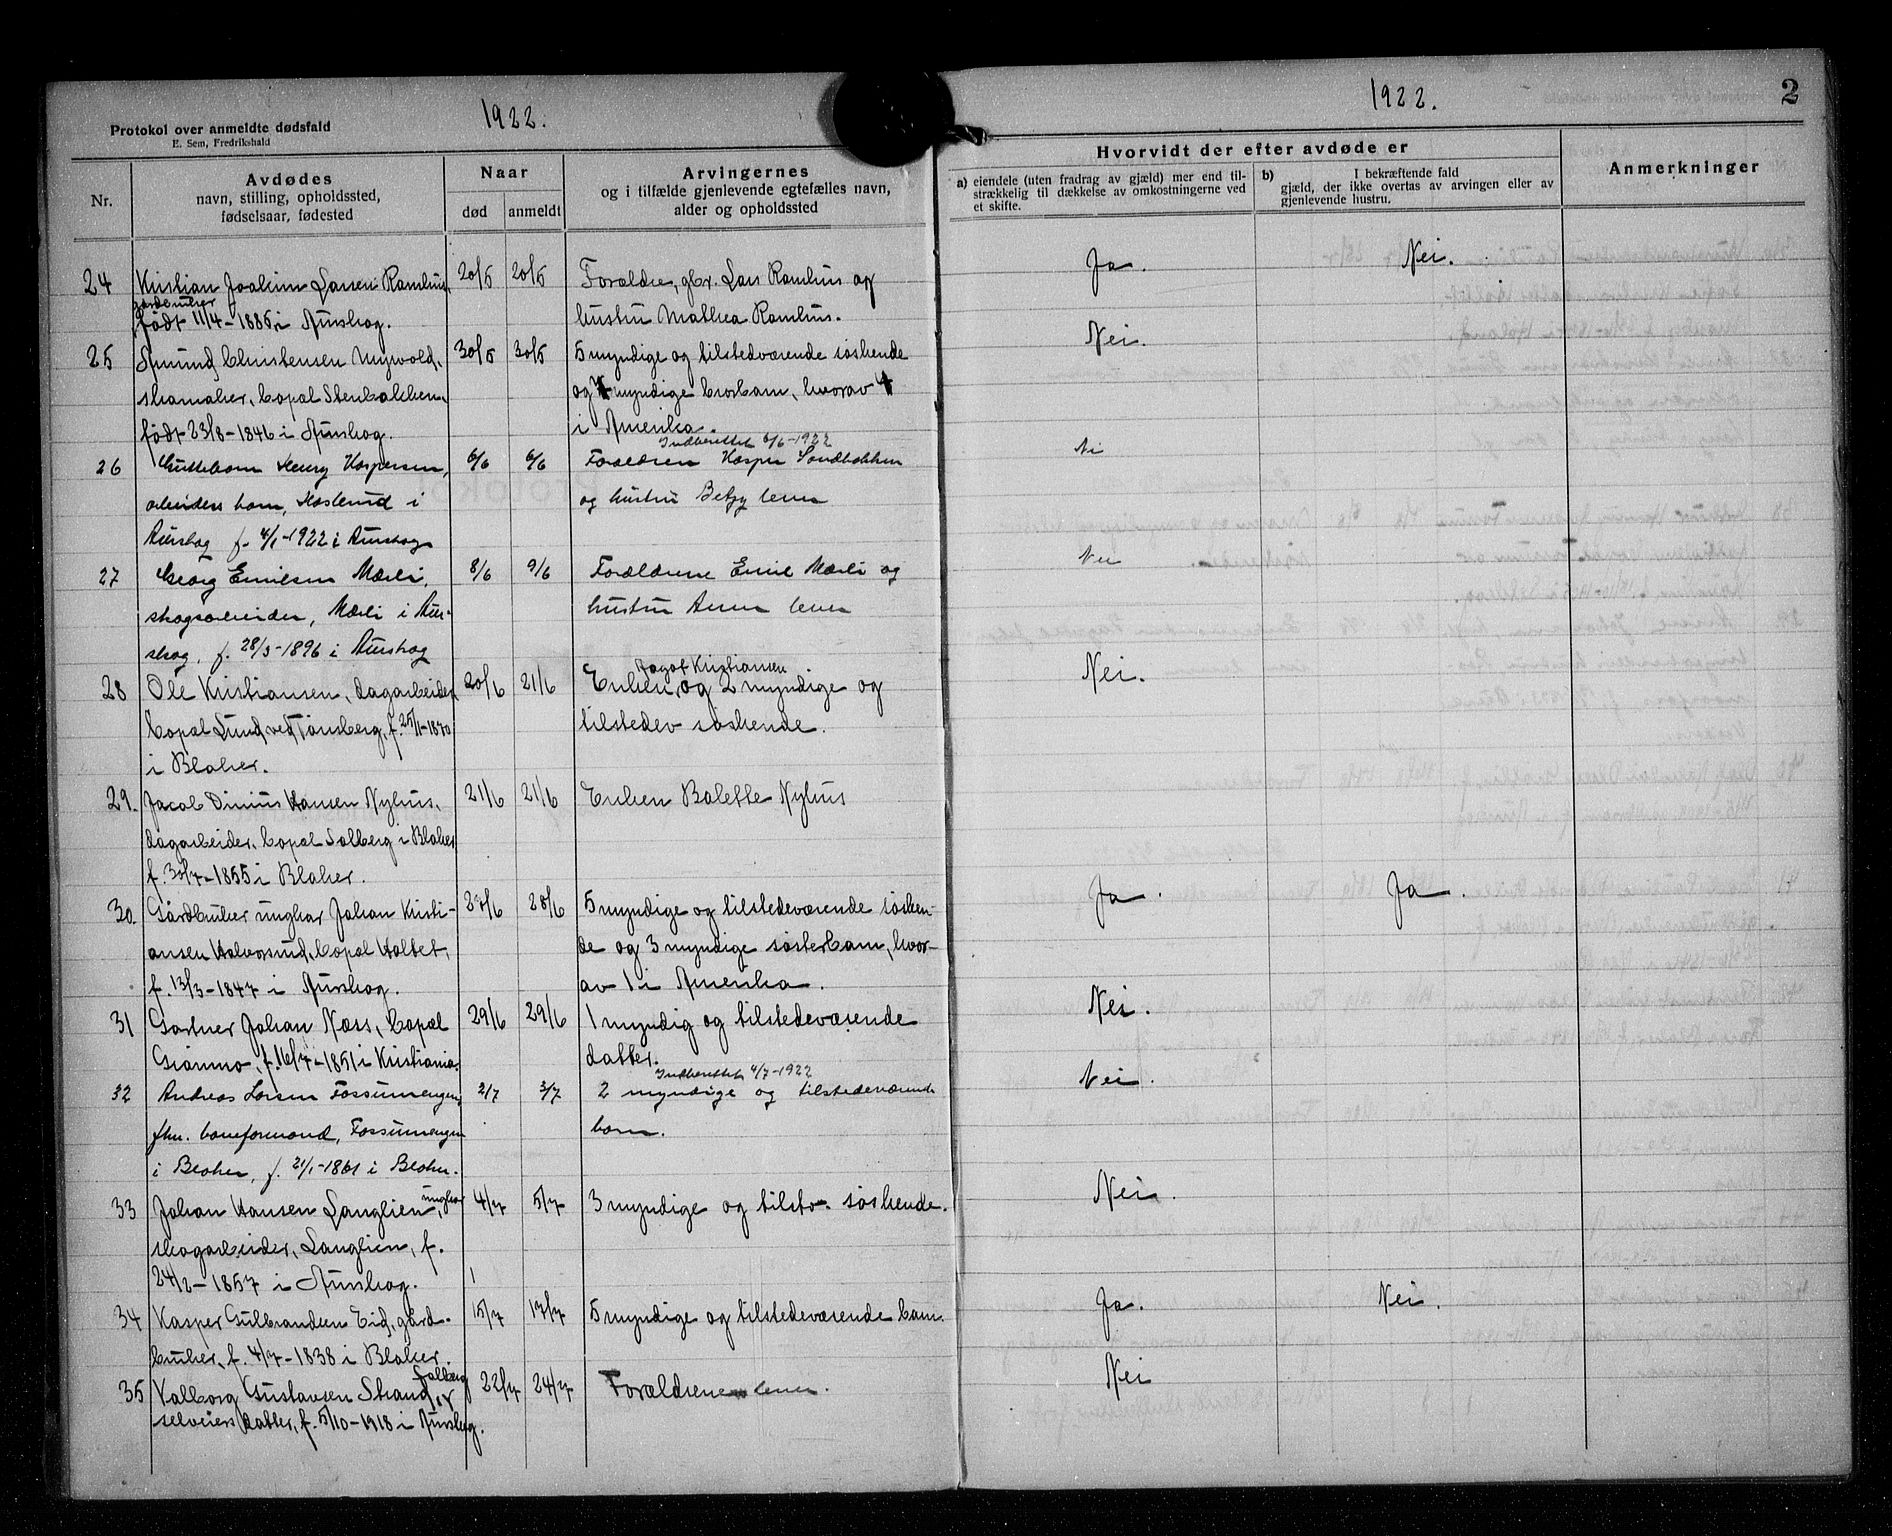 1922.
Protokol over anmeldte dødsfald
E. Sem, Fredrikshald
Nr.
Avdødes
navn, stilling, opholdssted,
fødselsaar, fødested
Naar
død
anmeldt
Arvingernes
og i tilfælde gjenlevende egtefælles navn,
alder og opholdssted
1922.
2
Hvorvidt der efter avdøde er
a) eiendele (uten fradrag av gjæld) mer end til-
strækkelig til dækkelse av omkostningerne ved
et skifte.
b) I bekræftende fald
gjæld, der ikke overtas av arvingen eller av
gjenlevende hustru.
Anmerkninger
24 Kristian Joakim Larsen Ramhus, 20/5 20/5 Forældre, gbr. Lars Ramhus og Ja. Nei.
gårdbruker
født 11/4-1885, i Aurskog. hustru Mathea Ramhus.
25 Amund Christensen Myrvold, 30/5 30/5 5 myndige og tilstedværende søskende Nei.
skomaker, bopæl Stenbakken, og 4 myndige brorbarn, hvorav 4
født 23/8-1846 i Aurskog. i Amerika.
Indberettet 6/6-1922
26 Guttebarn Henry Kaspersen, 6/6 6/6 Forældren Kasper Sandbakken Nei
arbeiders barn, i og hustru Betzy lever
Aurskog f. 4/1-1922 i Aurskog
27 Georg Emilsen Mærli, 8/6 9/6 Forældrene Emil Mærli og Nei
skogsarbeider, Mærli i Aur- hustru Anna lever
skog, f. 28/3-1896 i Aurskog
Kristiansen
28 Ole Kristiansen, dagarbeider 20/6 21/6 Enken, og 2 myndige og Nei.
bopæl Lund ved Tønsberg, f. 25/11-1870 tilstedev søskende.
i Blaker.
29. Jacob Dinius Hansen Nyhus, 21/6 21/6 Enken Balette Nyhus
dagarbeider, bopæl Solberg i Blaker
f. 30/7-1855 i Blaker.
30. Gårdbruker ungkar Johan Kristi- 28/6 28/6 5 myndige og tilstedeværende søsken- Ja. Ja.
ansen Halvorsrud, bopæl Holtet, de og 3 myndige søsterbarn, hvor-
f. 13/3-1847 i Aurskog. av 1 i Amerika.
31 Gartner Johan Næss, bopæl 29/6 29/6 1 myndig og tilstedeværende Nei.
Grønmo, f. 16/7-1851 i Kristiania. datter.
Indberettet 4/7-1922
32 Andreas Larsen Fossumengen, 2/7 3/7 2 myndige og tilstedeværende Nei.
fhv. baneformand, Fossumengen barn.
i Blaker, f. 21/1-1861 i Blaker.
33 Johan Hansen Langlien, ungkar 4/7 5/7 3 myndige og tilstv. søskende. Nei.
skogarbeider, Langlien, f.
24/2-1857 i Aurskog.
34 Kasper Gulbrandsen Eid, gård- 15/7 17/7 5 myndige og tilstedeværende barn. Ja. Nei.
bruker, f. 4/7-1838 i Blaker.
35 Valborg Gustavsen Strand 22/7 24/7 Forældrene lever. Nei
selveiers datter, f. 5/10-1918 i Aurskog.